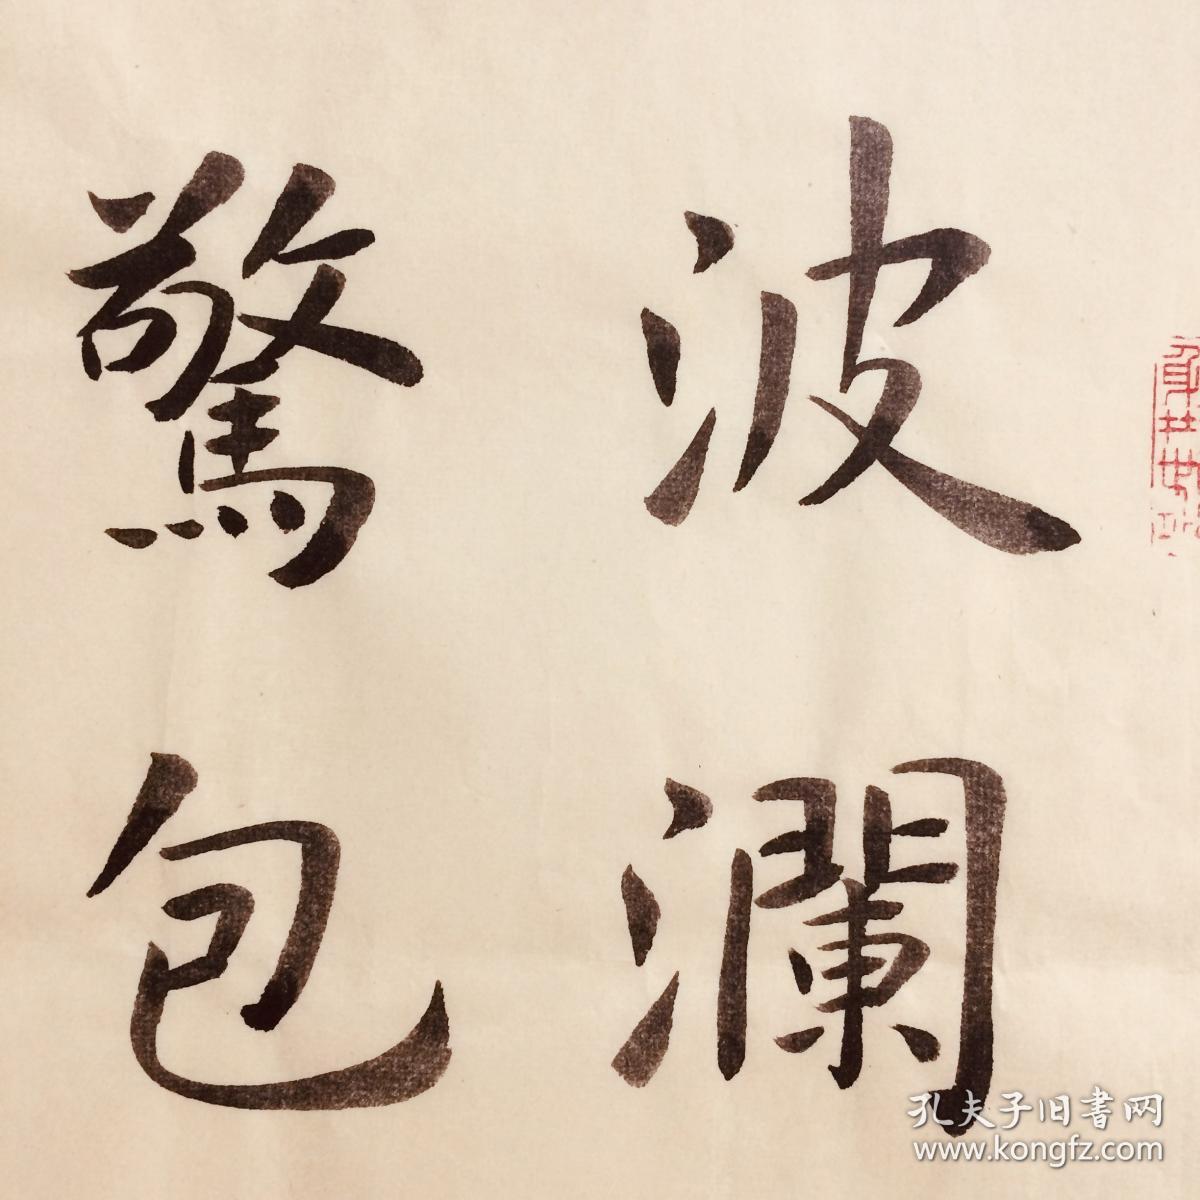 波澜
驚包
孔夫子旧书网
www.kongfz.com